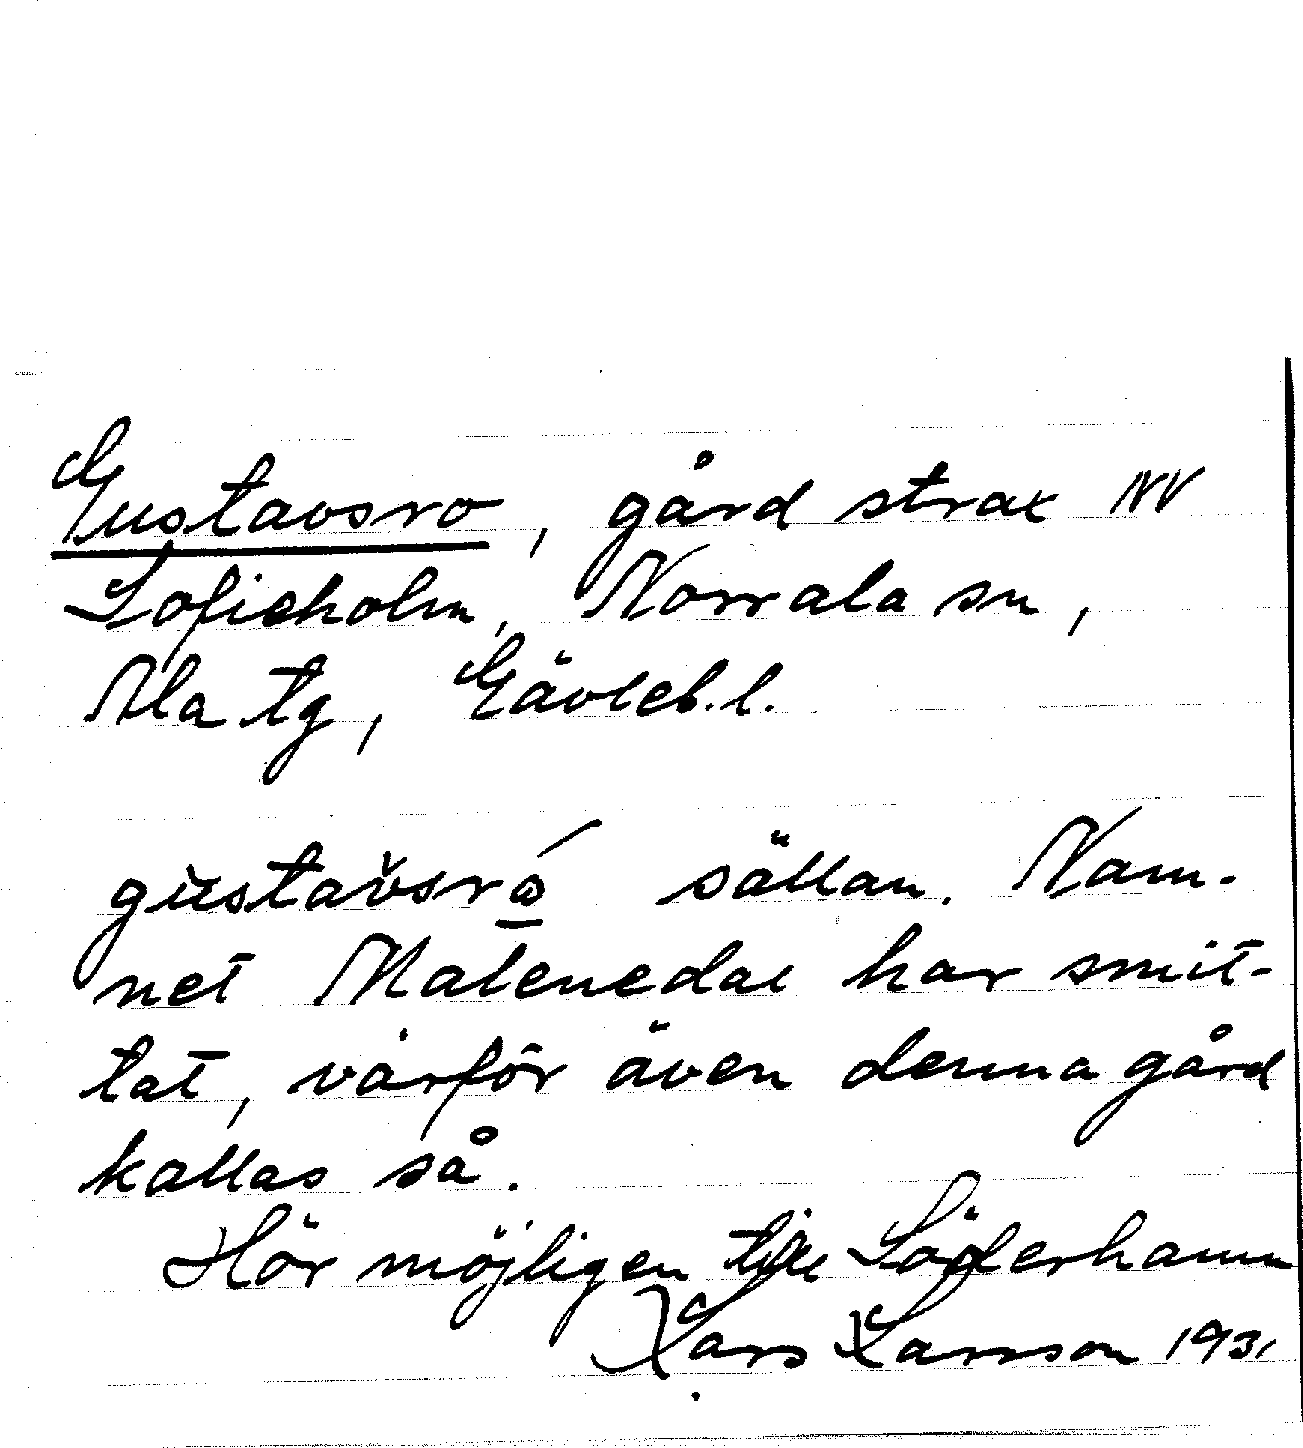 Gustavsro, gård strax NV
Sofieholm, Norrala sn,
Ala tg, Gävleb.l.
gustavsró sällan. Nam-
net Malenedal har smit-
tat, varför även denna gård
kallas så.
Hör möjligen till Söderhamn
Lars Larsson 1931